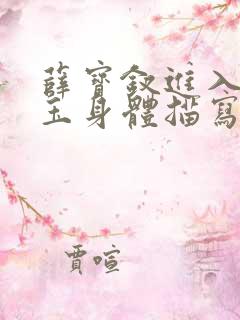 薛寶釵進入
玉身體描寫
賈喧